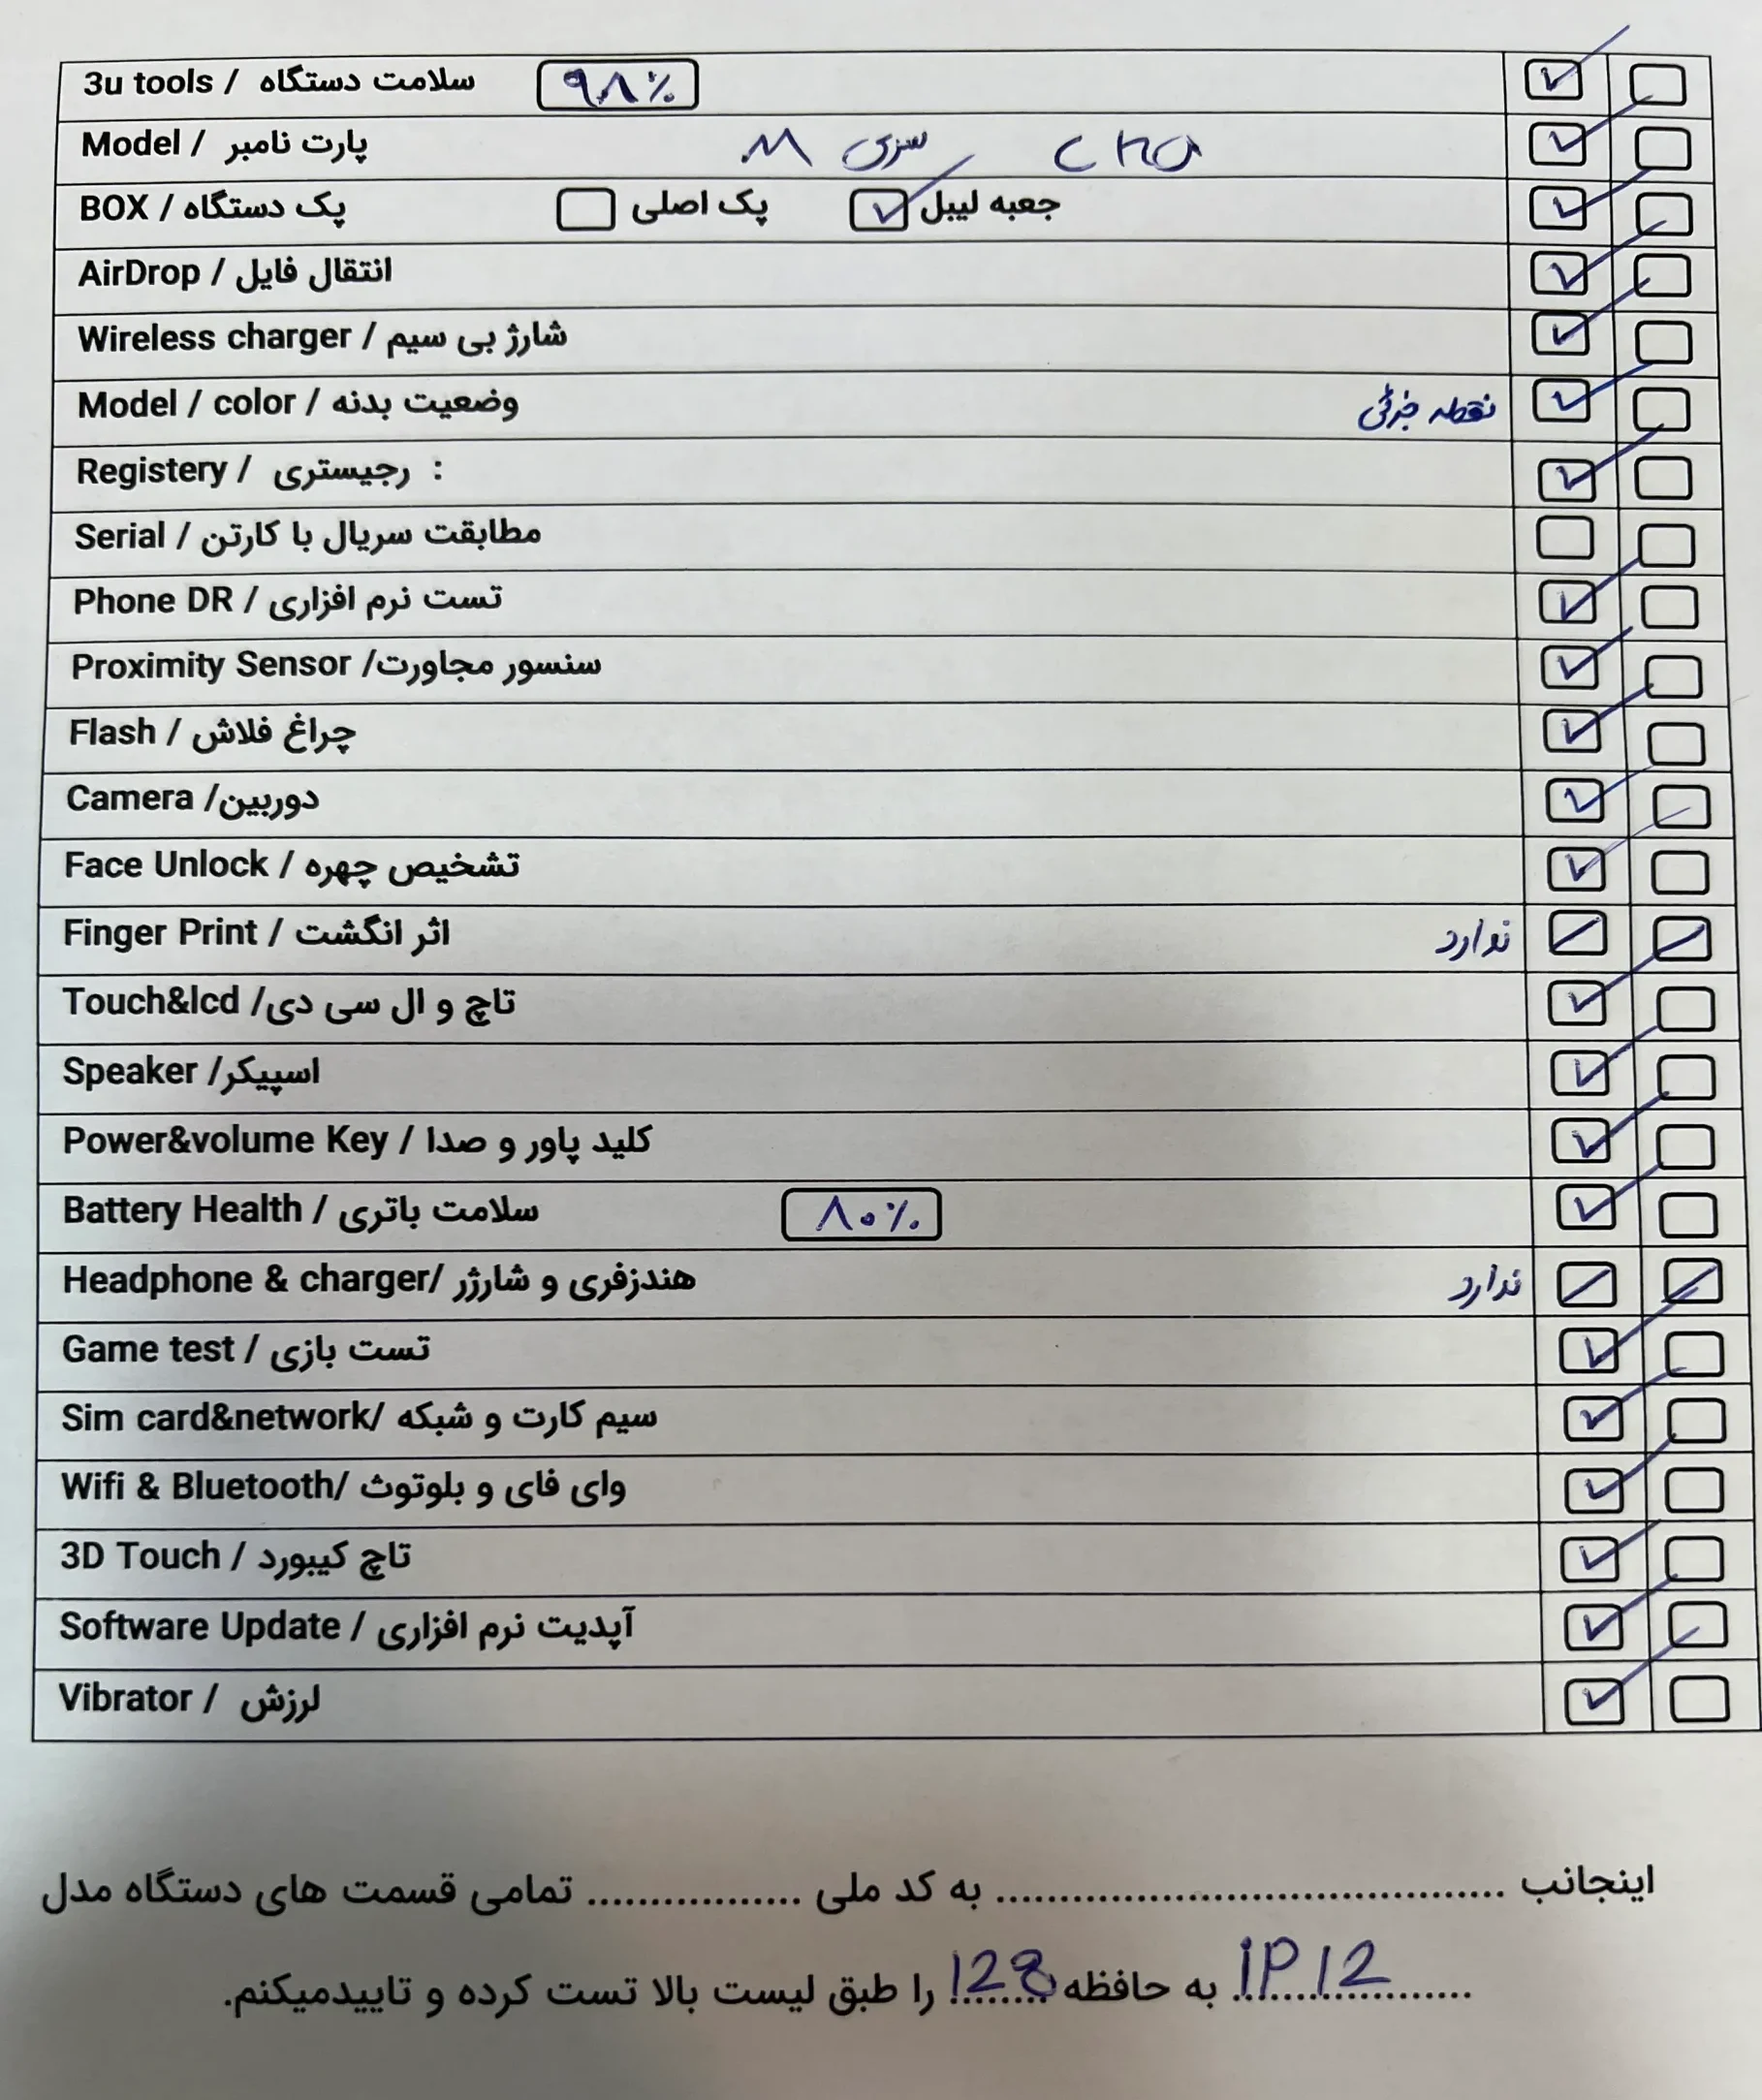 3u tools / سلامت دستگاه ۹۸٪
Model / پارت نامبر سری M CHA
BOX / پک دستگاه پک اصلی جعبه لیبل
AirDrop / انتقال فایل
Wireless charger / شارژ بی سیم
Model / color / وضعیت بدنه نقطه جزئی
Registery / رجیستری :
Serial / مطابقت سریال با کارتن
Phone DR / تست نرم افزاری
Proximity Sensor /سنسور مجاورت
Flash / چراغ فلاش
Camera /دوربین
Face Unlock / تشخیص چهره
Finger Print / اثر انگشت ندارد
Touch&lcd /تاچ و ال سی دی
Speaker /اسپیکر
Power&volume Key / کلید پاور و صدا
Battery Health / سلامت باتری ۸۰٪
Headphone & charger/ هندزفری و شارژر ندارد
Game test / تست بازی
Sim card&network/ سیم کارت و شبکه
Wifi & Bluetooth/ وای فای و بلوتوث
3D Touch / تاچ کیبورد
Software Update / آپدیت نرم افزاری
Vibrator / لرزش
اینجانب ........................................ به کد ملی ................. تمامی قسمت های دستگاه مدل
iP 12 به حافظه 128 را طبق لیست بالا تست کرده و تاییدمیکنم.